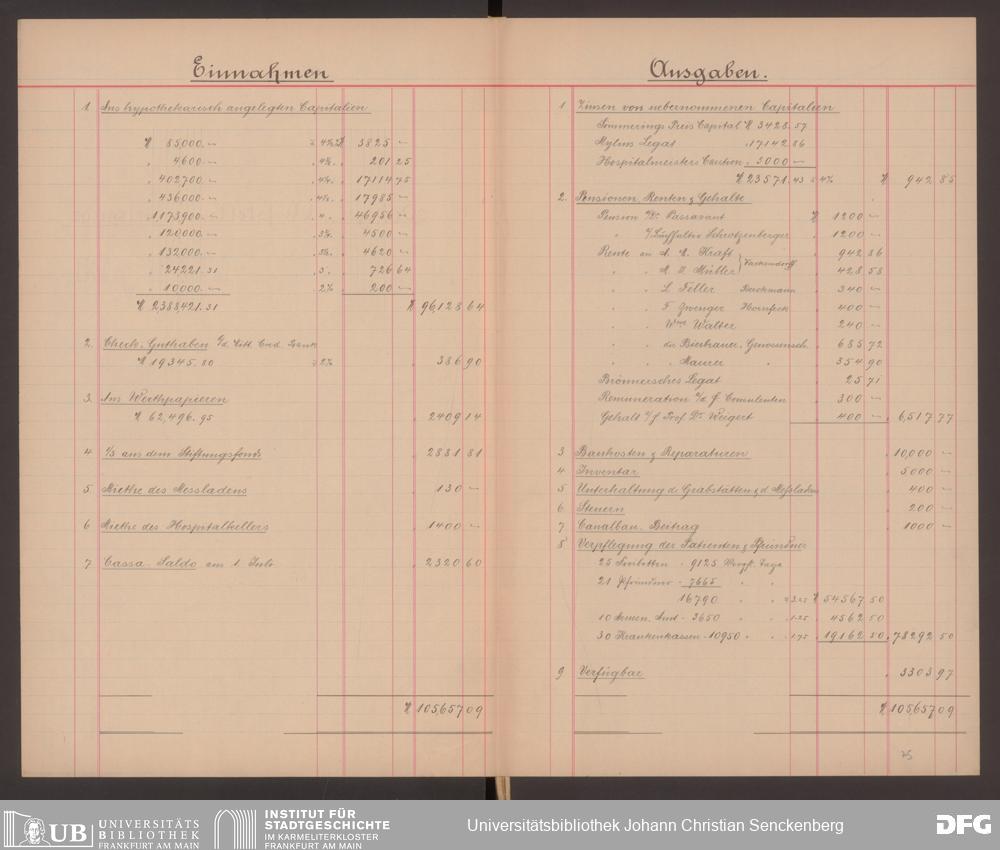 Einnahmen
1. Aus hypothekarisch angelegten Capitalien
M 85,000.— à 4½% M 3825 —
" 4600.— " 4⅜. " 201 25
" 402700.— " 4¼. " 17114 75
" 436000.— " 4⅛. " 17985 —
" 1173900.— " 4. " 46956 —
" 120000.— " 3¾. " 4500 —
" 132000.— " 3½. " 4620 —
" 24221.31 " 3. " 726 64
" 10000.— " 2% " 200 —
M 2,388,421.31 M 96,128 64
2. Check-Guthaben Bank
M 19345.80 à 2% " 386 90
3. Aus Werthpapieren
M 62,496.95 " 2409 14
4. ⅓ aus dem Stiftungsfonds " 2881 81
5. Miethe des Messladens " 130 —
6. Miethe des Hospitalkellers " 1400 —
7. Cassa-Saldo am 1. " 2320 60
M 105,657 09
Ausgaben.
1 Zinsen von uebernommenen Capitalien
Sömmerings Preis Capital M 3428.57
Mylius Legat " 17142.86
Hospitalmeisters Caution " 3000 —
M 23571.43 à 4% M 942 85
2. Pensionen, Renten & Gehalte
Pension Dr. Passavant M 1200 —
" Schrotzenberger " 1200 —
Rente an A. M. Kraft " 942 86
" " Mühler " 428 58
" " L Feller " 340 —
" " F Zwenger " 400 —
" " Wwe Walter " 240 —
" " die Bierbrauer-Genossensch. " 685 72
" " " Maurer " " 354 90
Brönnersches Legat " 25 71
Remuneration Consulenten " 300 —
Gehalt Prof. Dr. Weigert " 400 — " 6,517 77
3 Baukosten & Reparaturen " 10,000 —
4. Inventar " 5000 —
5 Unterhaltung d. Grabstätten & d. Meßladens " 400 —
6. Steuern " 200 —
7 Canalbau-Beitrag " 1000 —
8 Verpflegung der Patienten & Pfründner
25 - 9125 Tage
21 Pfründner - 7665 " "
16790 " " à 3.25 M 54567 50
10 Armen-Amt - 3650 " " " 1.25 " 4562 50
30 Krankenkassen - 10950 " " " 1.75 " 19162 50 " 78292 50
9 Verfügbar " 3303 97
M 105,657 09
UB UNIVERSITÄTS
BIBLIOTHEK
FRANKFURT AM MAIN
INSTITUT FÜR
STADTGESCHICHTE
IM KARMELITERKLOSTER
FRANKFURT AM MAIN
Universitätsbibliothek Johann Christian Senckenberg
DFG